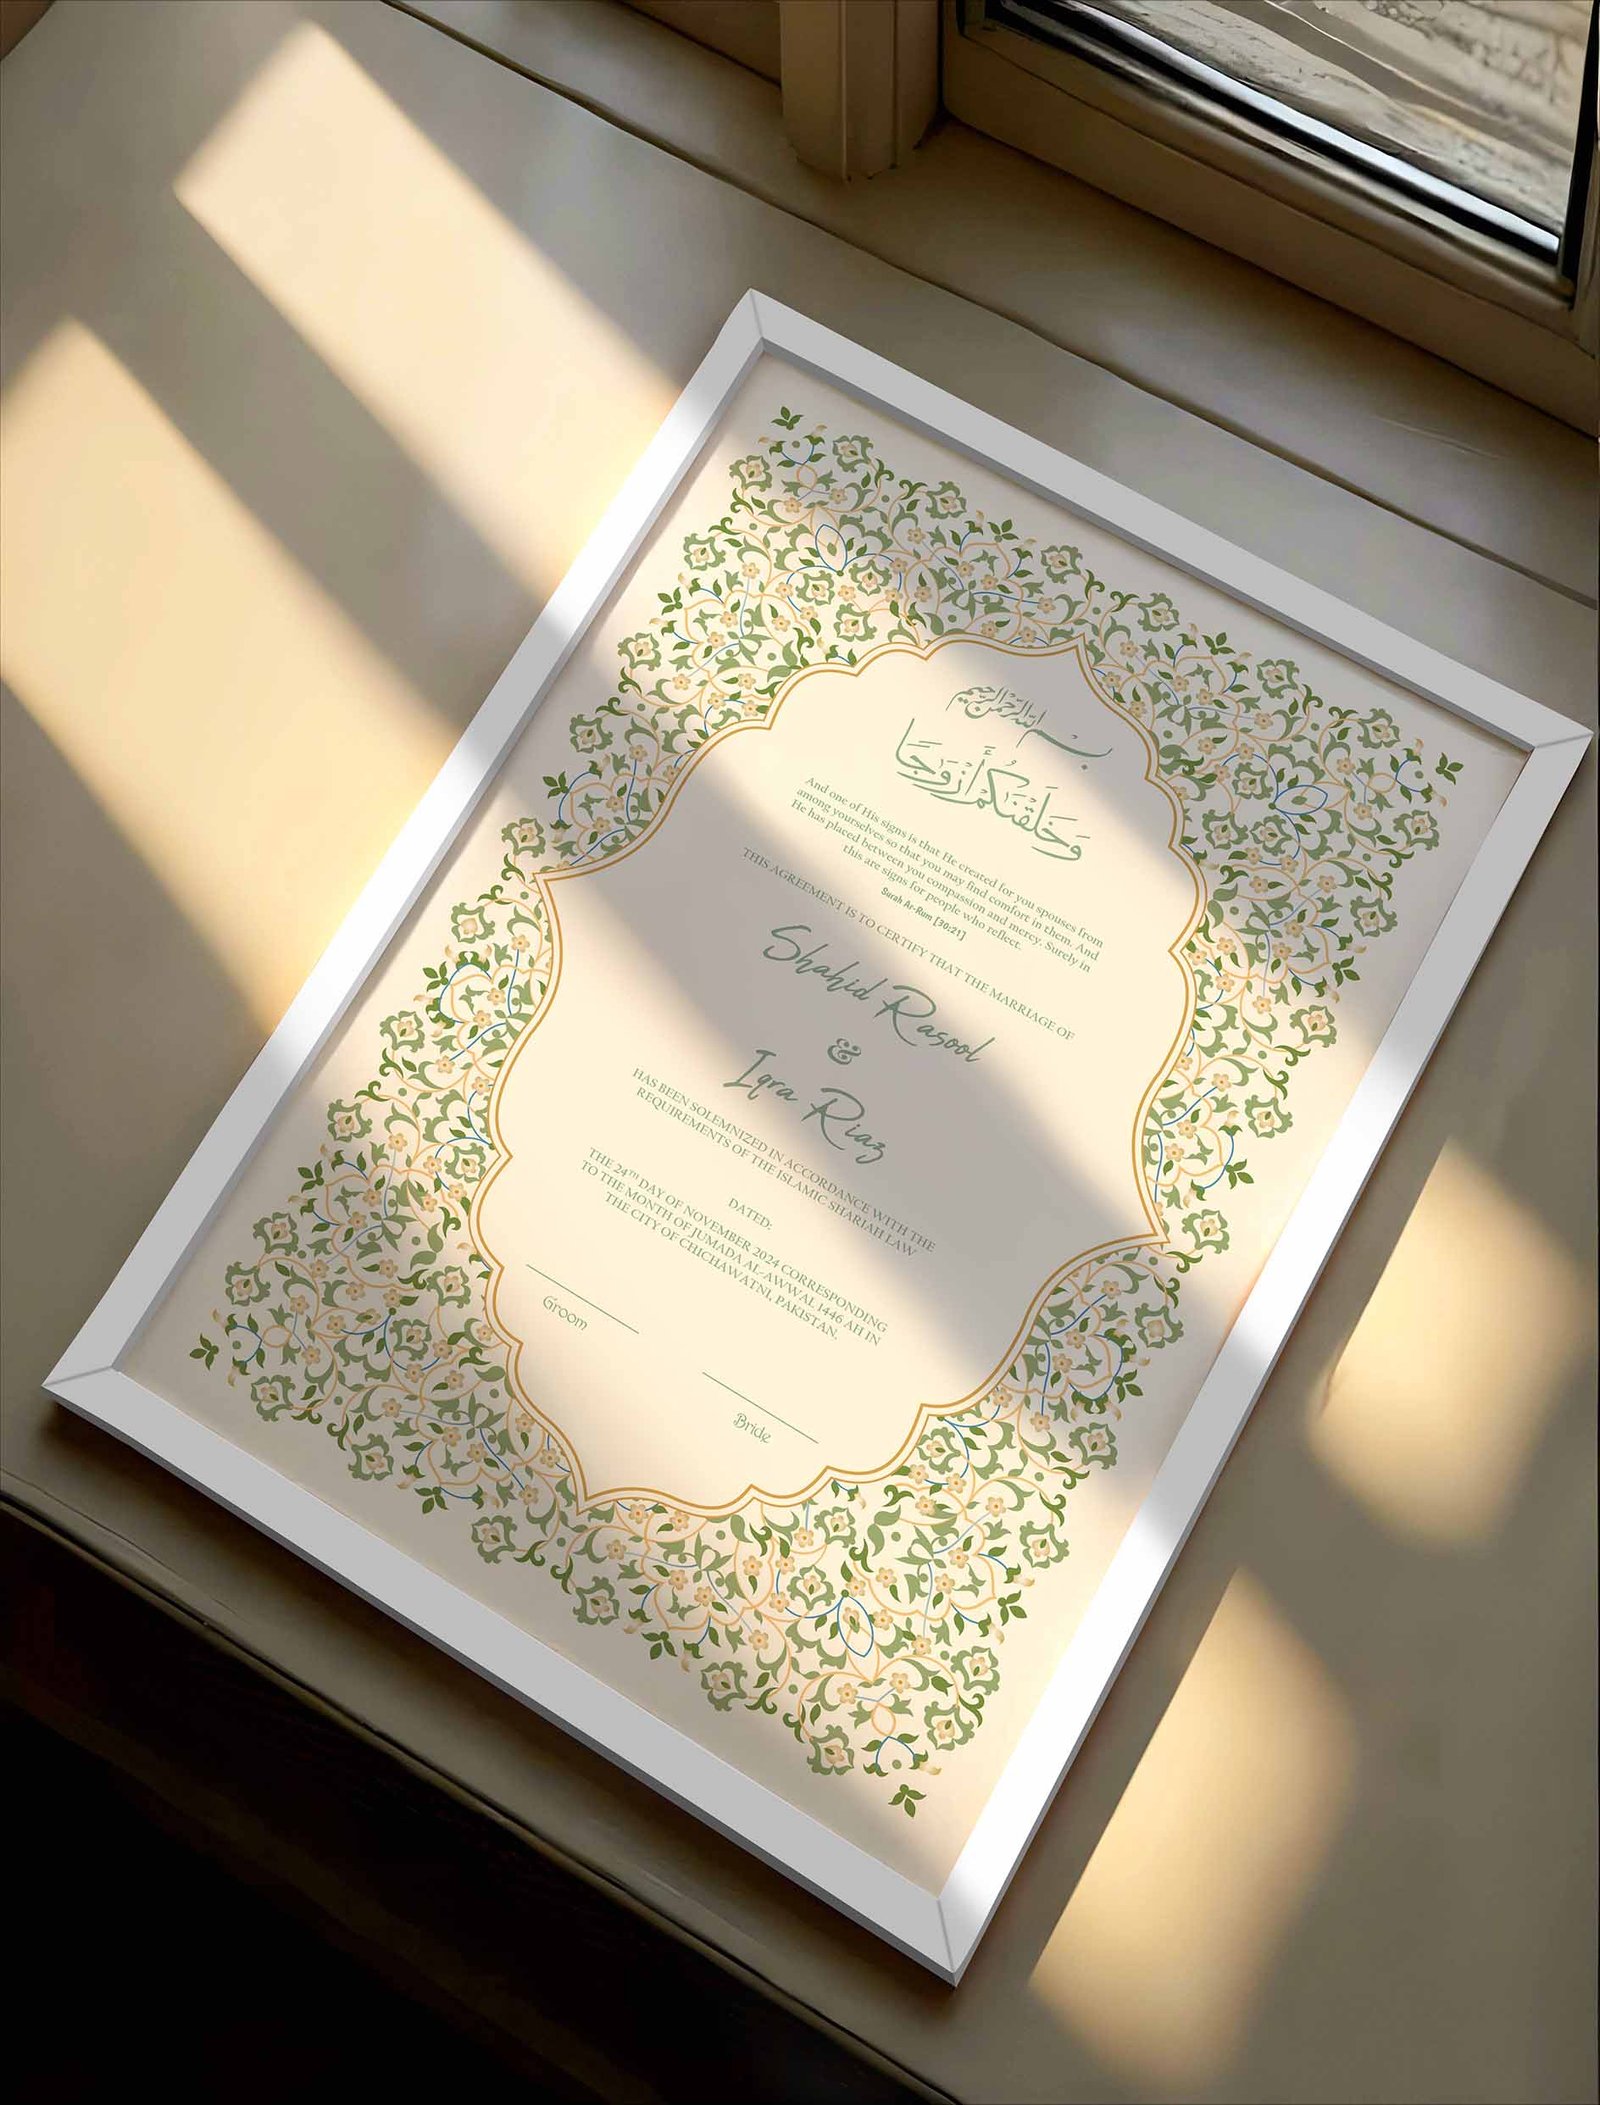 بسم الله الرحمن الرحيم
وَخَلَقْنَكُمْ أَزْوَجًا
And one of His signs is that He created for you spouses from
among yourselves so that you may find comfort in them. And
He has placed between you compassion and mercy. Surely in
this are signs for people who reflect.
Surah Ar-Rum [30:21]
THIS AGREEMENT IS TO CERTIFY THAT THE MARRIAGE OF
Shahid Rasool
&
Iqra Riaz
HAS BEEN SOLEMNIZED IN ACCORDANCE WITH THE
REQUIREMENTS OF THE ISLAMIC SHARIAH LAW
DATED:
THE 24TH DAY OF NOVEMBER 2024 CORRESPONDING
TO THE MONTH OF JUMADA AL-AWWAL 1446 AH IN
THE CITY OF CHICHAWATNI, PAKISTAN.
Groom
Bride